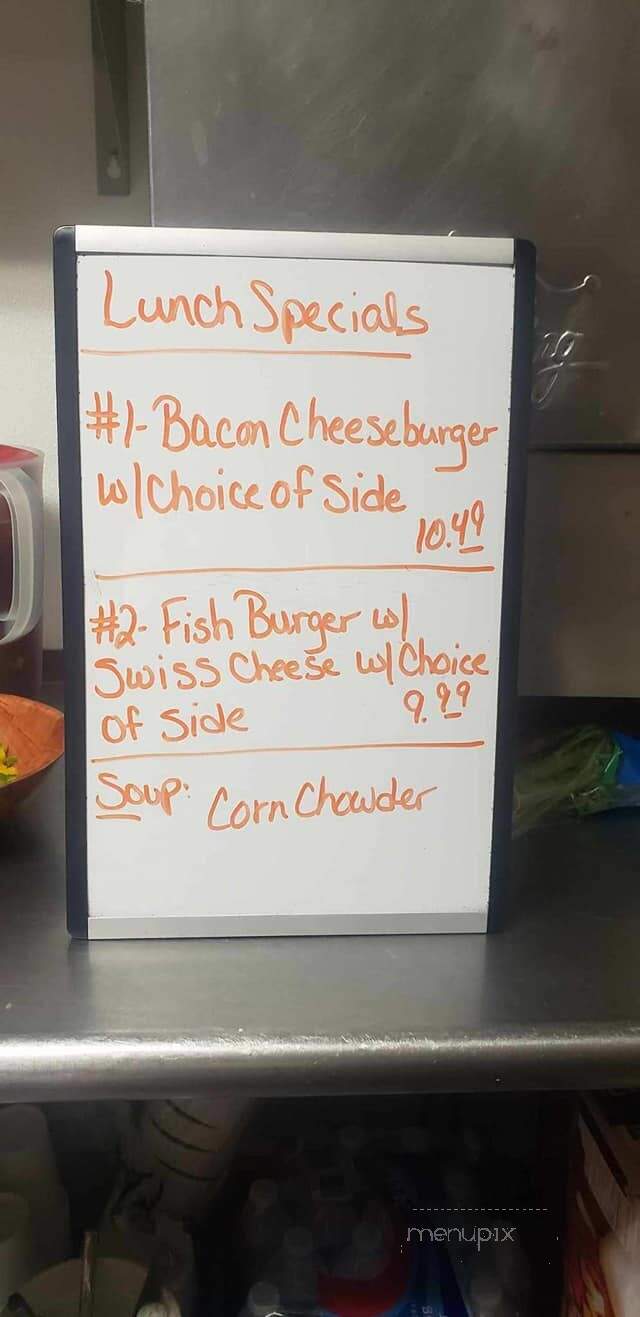 Lunch Specials
#1- Bacon Cheeseburger
w/Choice of Side
10.49
#2- Fish Burger w/
Swiss Cheese w/Choice
of Side 9.99
Soup: Corn Chowder
menupix